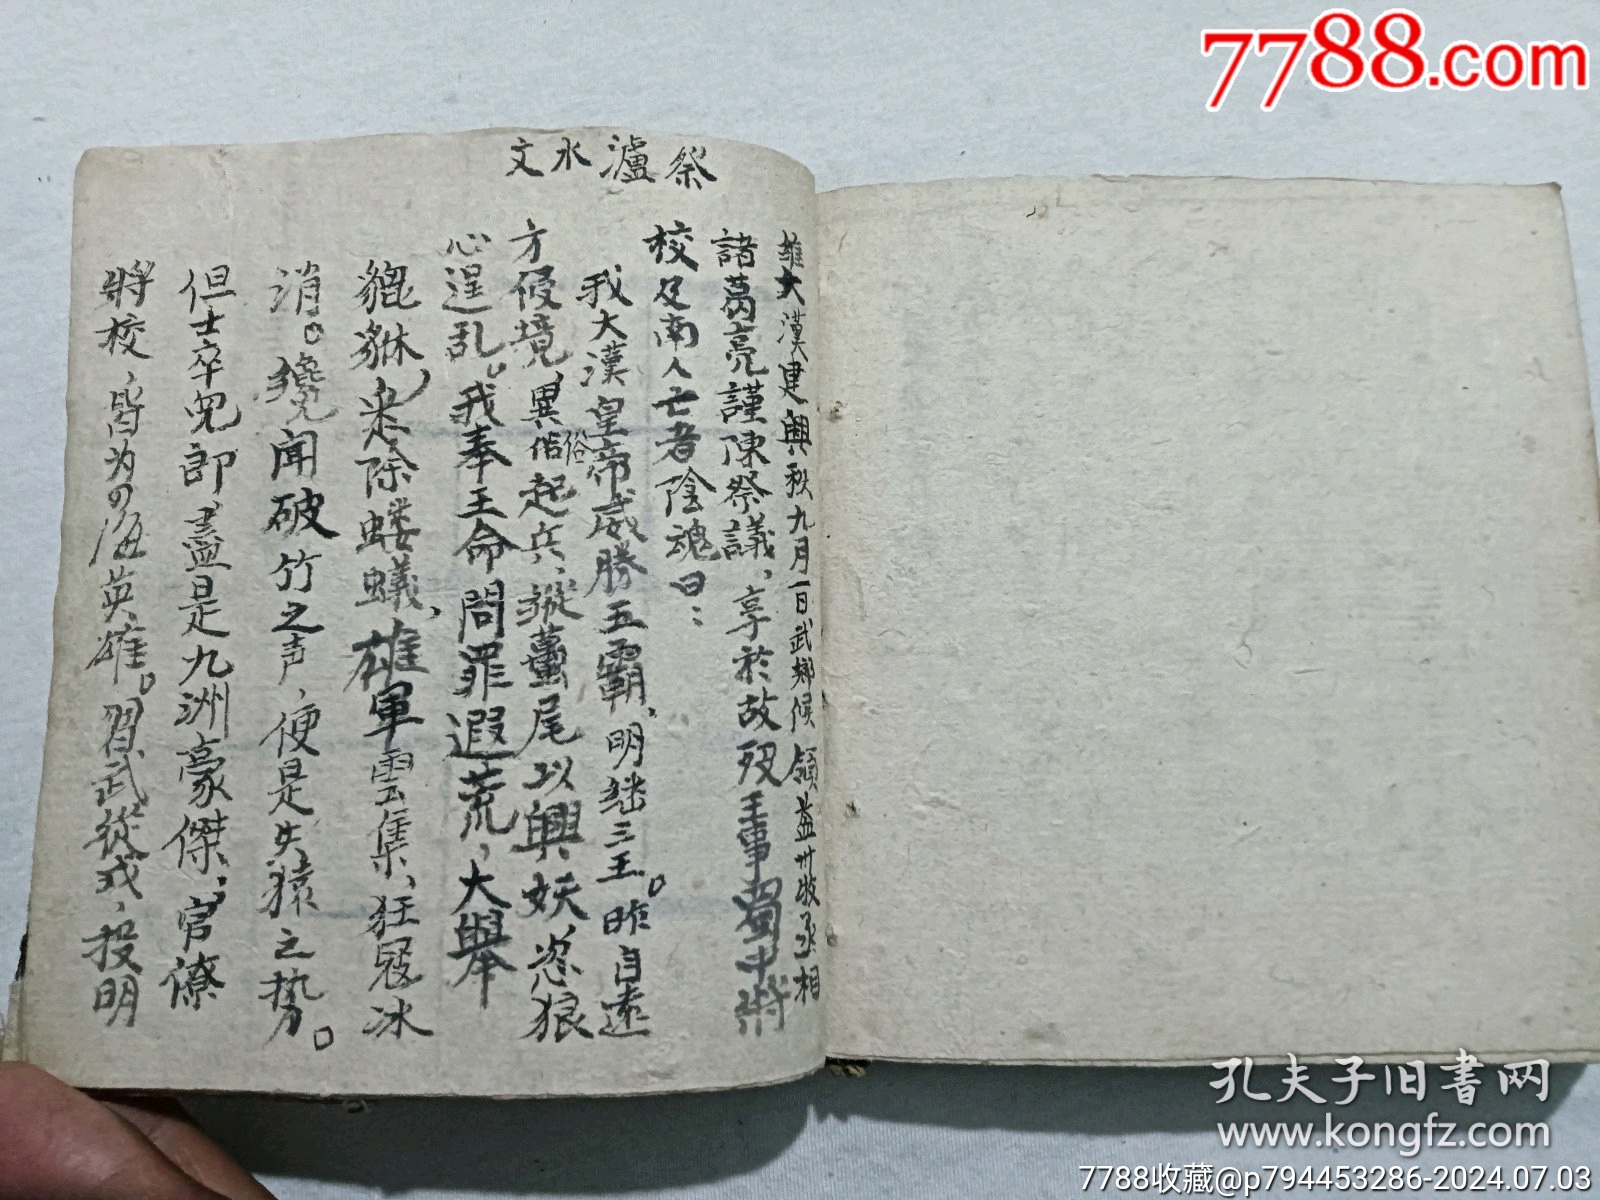 祭瀘水文
維大漢建興秋九月一日武鄉候領益州牧丞相
諸葛亮謹陳祭議、享於故歿王事蜀中將
校及南人亡者陰魂曰：
我大漢皇帝威勝五霸，明继三王。昨自遠
方侵境，異俗起兵、縱蠆尾以興妖，恣狼
俗
心逞乱。我奉王命問罪遐荒，大舉
貔貅，悉除螻蟻，雄軍雲集，狂冦冰
消。纔聞破竹之声，便是失猿之势。
但士卒兒郎盡是九洲豪傑，官僚
將校，皆为四海英雄。習武從戎，投明
7788.com
孔夫子旧書网
www.kongfz.com
7788收藏@p794453286-2024.07.03